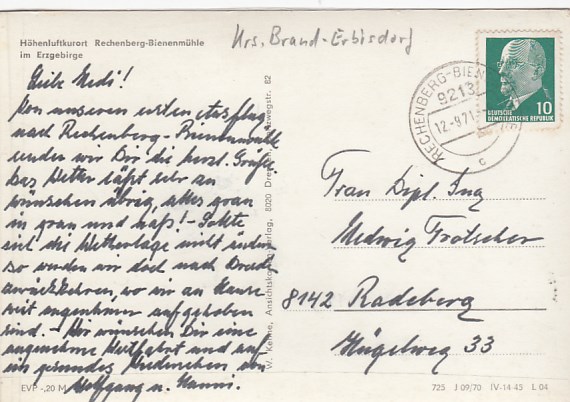 Krs. Brand-Erbisdorf
Höhenluftkurort Rechenberg-Bienenmühle
im Erzgebirge
Liebe Hedi!
Von unserem ersten Ausflug
nach Rechenberg-Bienenmühle
senden wir Dir die herzl. Grüße
Das Wetter läßt sehr zu
wünschen übrig, alles grau
in grau und naß! - Sollte
sich die Wetterlage nicht ändern
so werden wir doch nach Dresd.
zurückkehren, wo wir zu Hause
mit angenehmer aufgehoben
sind. - Wir wünschen Dir eine
angenehme Mitfahrt und auf
ein gesundes Wiedersehen, von
Wolfgang u. Hanni.
EVP -,20 M
W. Kenne, Ansichtskartenverlag, 8020 Dresden, 82
RECHENBERG-BIEN
9213
12.-9.71
c
10
DEUTSCHE
DEMOKRATISCHE REPUBLIK
Frau Dipl. Ing
Hedwig Trötscher
8142 Radeberg
Hügelweg 33
725 J 09/70 IV-14-45 L 04